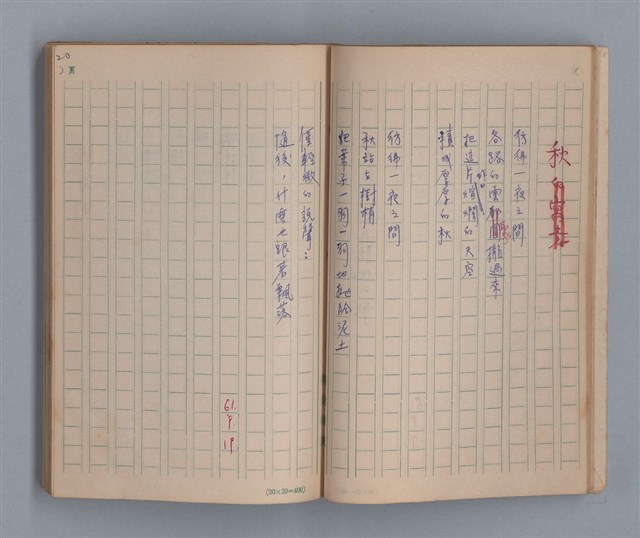 秋
彷彿一夜之間
各路的雲都圍攏過來
把這片燦爛的天空
積成厚厚的秋
彷彿一夜之間
秋站在樹梢
把葉子一翦一翦地拋給泥土
僅輕微的說聲：
隨後，什麼也跟著飄落
61.
9.
19
20
頁
(20×20=400)